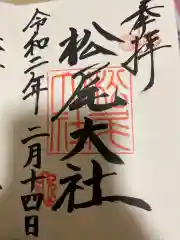 奉拝
松尾大社
令和二年 二月十四日